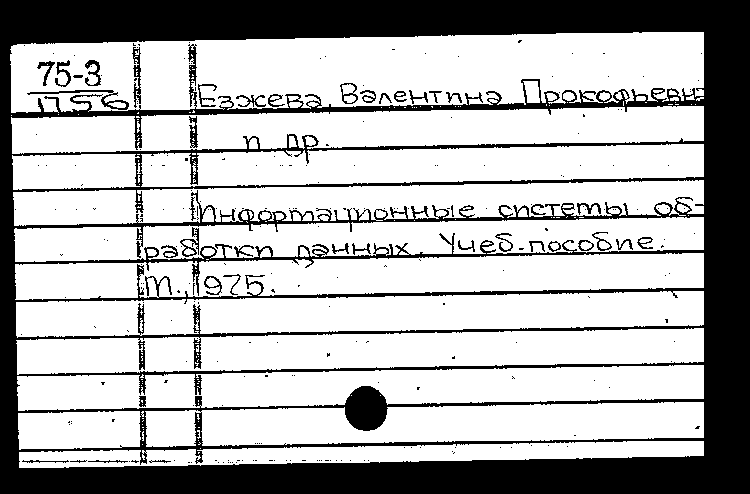 75-3
1756
Езжева, Валентина Прокофьевна
и др.
Информационные системы об-
работки данных. Учеб. пособие.
М., 1975.